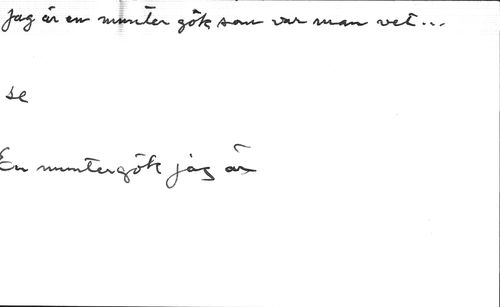 Jag är en munter gök som var man vet...
se
En munter gök jag är